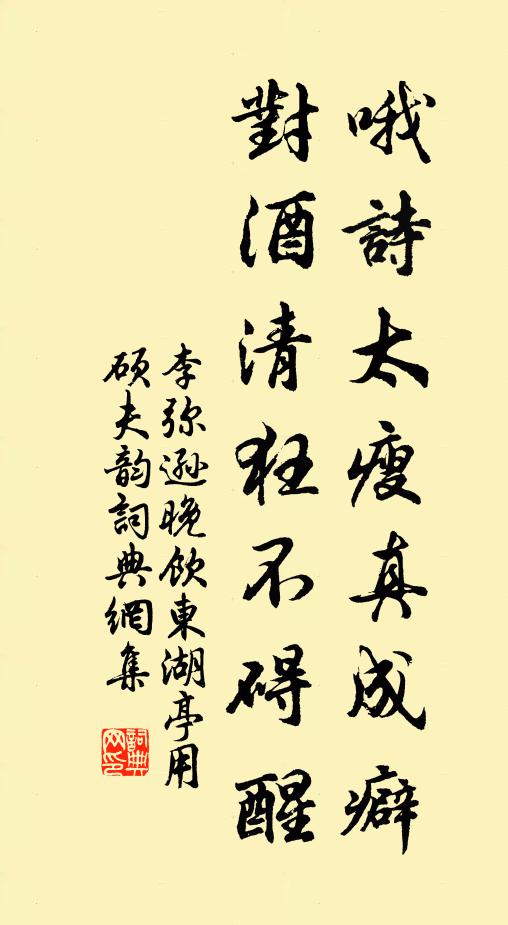 哦詩太瘦真成癖
對酒清狂不碍醒
李弥遜晚飲東湖亭用
碩夫韵詞典網集
詞典网印